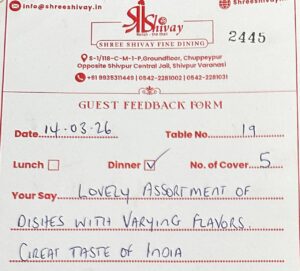 info@shreeshivay.in
Shivay
SHREE SHIVAY FINE DINING
2445
S-1/118-C-M-1-P,Groundfloor, Chuppeypur
Opposite Shivpur Central Jail, Shivpur Varanasi
+91 9935311449 | 0542-2281002 | 0542-2281031
GUEST FEEDBACK FORM
Date 14.03.26 Table No. 19
Lunch Dinner ✓ No. of Cover 5
Your Say LOVELY ASSORTMENT OF
DISHES WITH VARYING FLAVORS.
GREAT TASTE OF INDIA